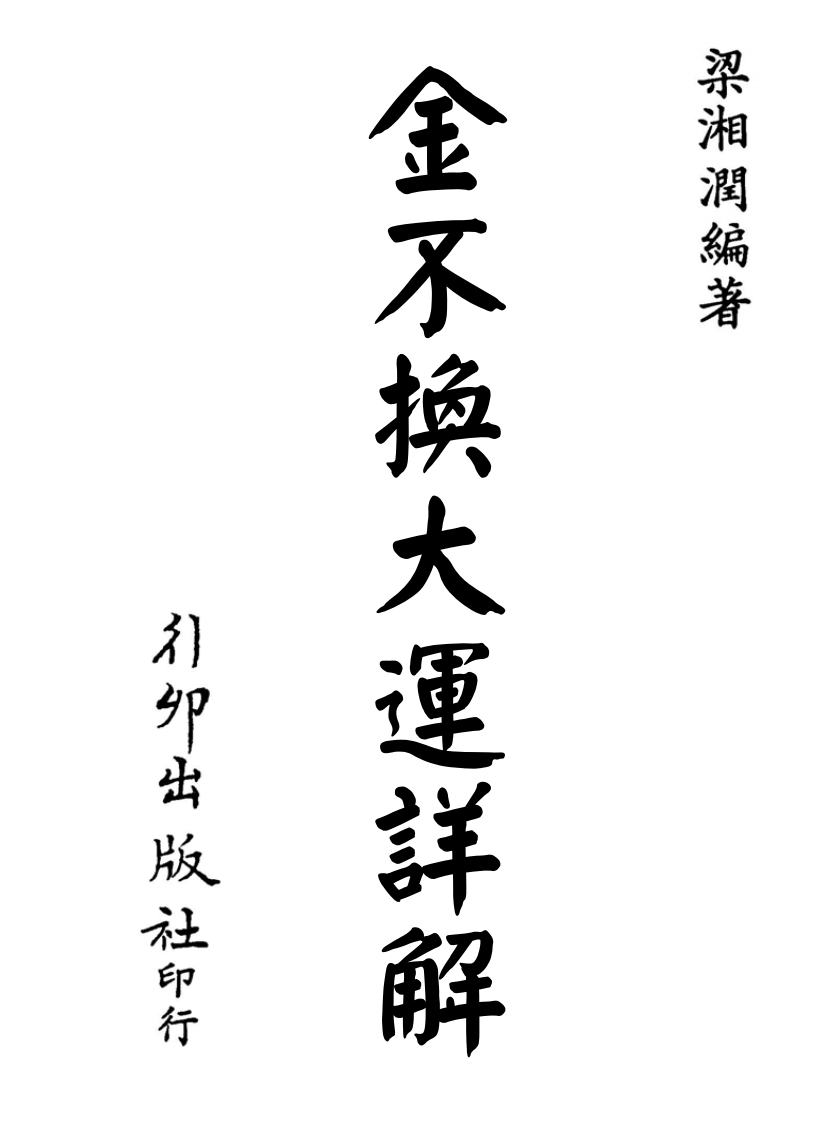 梁湘潤編著
金不換大運詳解
行卯出版社印行